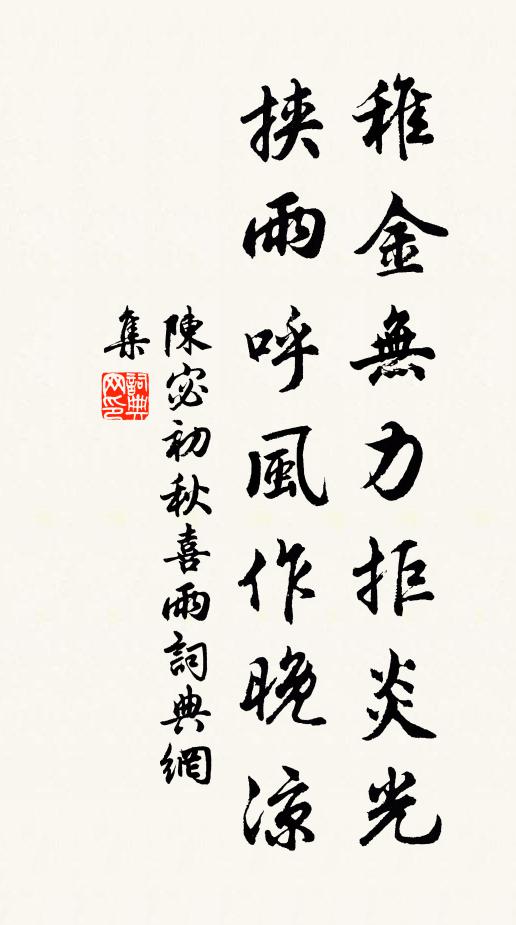 稚金無力拒炎光
挾雨呼風作晚涼
陳宓初秋喜雨詞典網
集
詞典网印